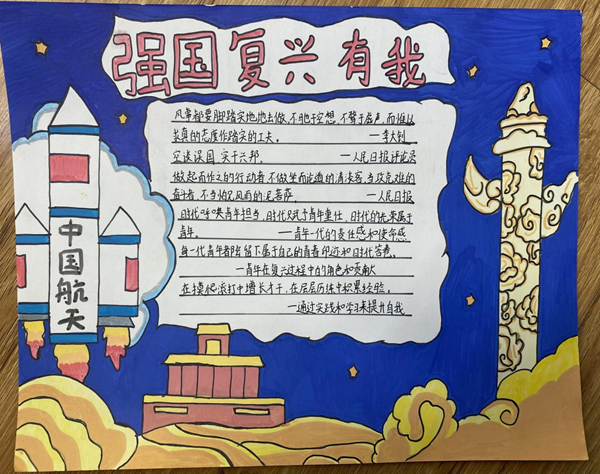 强国复兴有我
凡事都要脚踏实地地去做,不驰于空想,不骛于虚声,而惟以
求真的态度作踏实的工夫。 —李大钊
空谈误国,实干兴邦。 —人民日报评论员
做起而行之的行动者,不做坐而论道的清谈客,当攻克难的
奋斗者,不当怕见风雨的泥菩萨。 —人民日报
时代呼唤青年担当,时代赋予青年重任,时代的光荣属于
青年。 —青年一代的责任感和使命感
每一代青年都将留下属于自己的青春印迹和时代答卷。
—青年在复兴过程中的角色和贡献
在摸爬滚打中增长才干,在层层历练中积累经验。
—通过实践和学习来提升自我
中国航天